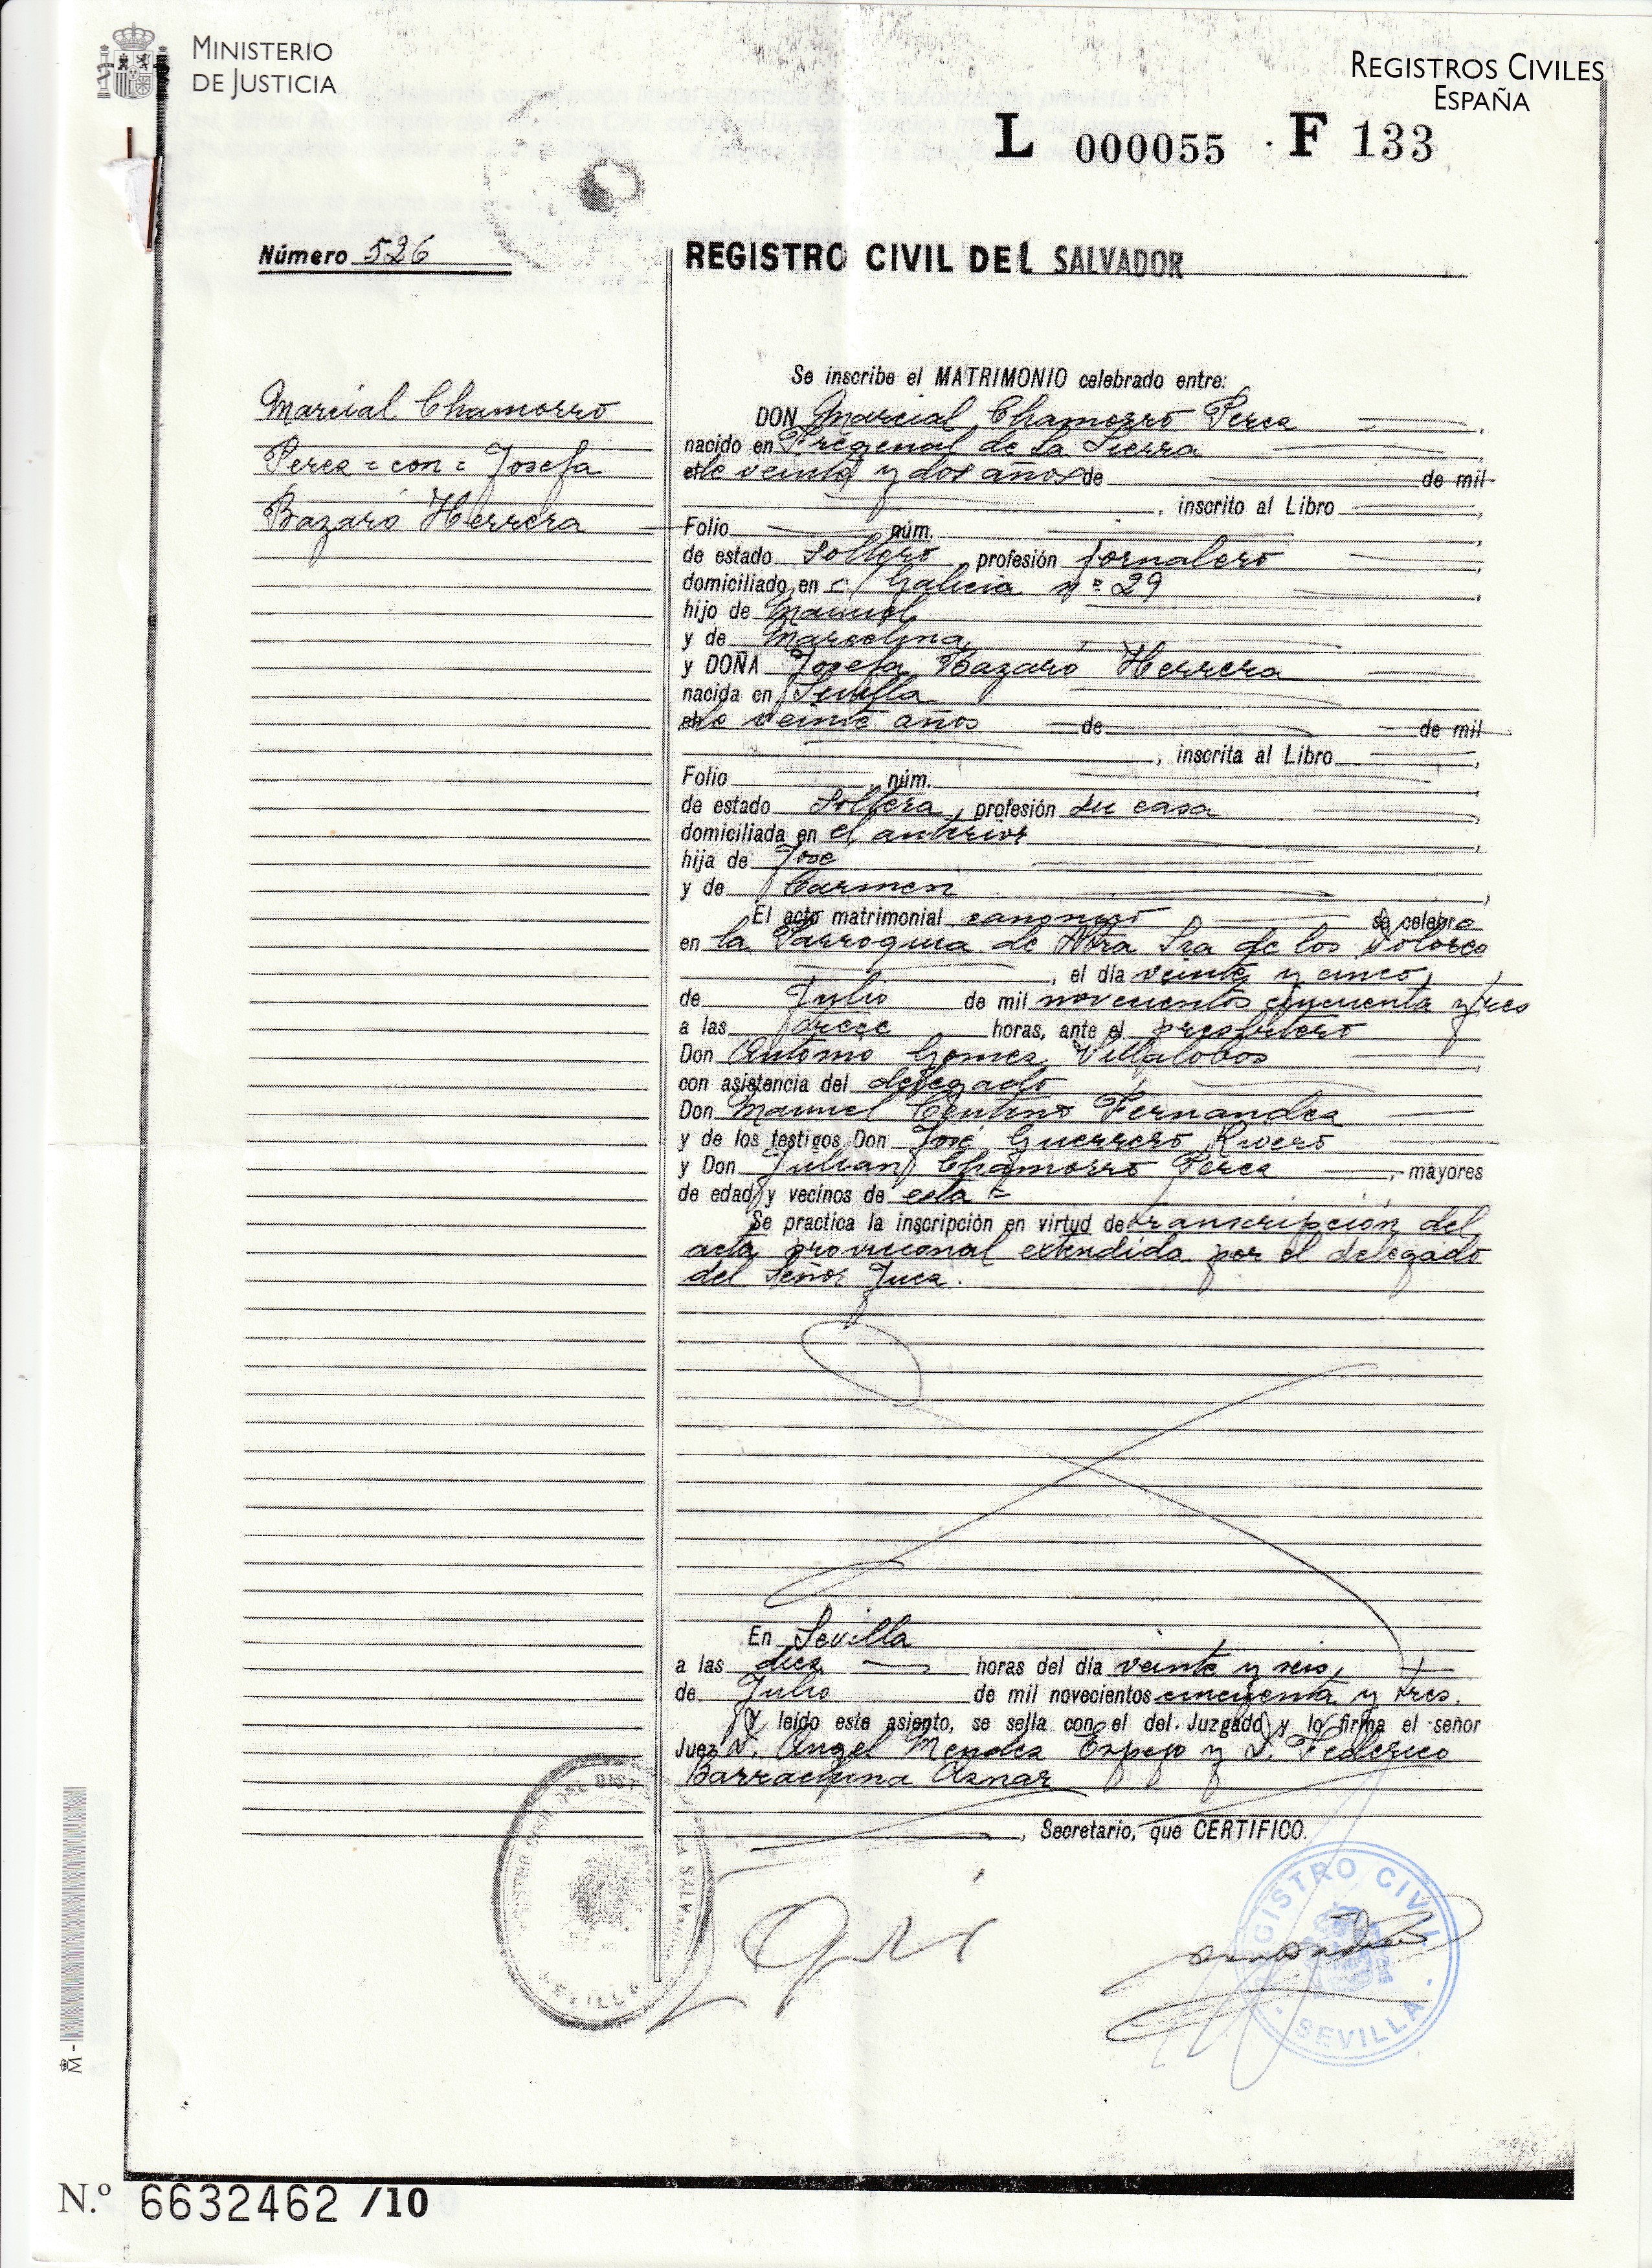 MINISTERIO
DE JUSTICIA
REGISTROS CIVILES
ESPAÑA
L 000055 F 133
Número 526
REGISTRO CIVIL DEL SALVADOR
Marcial Chamorro
Perez = con = Josefa
Bazaro Herrera
Se inscribe el MATRIMONIO celebrado entre:
DON Marcial Chamorro Perez
nacido en Fregenal de la Sierra
de veinte y dos años de de mil
, inscrito al Libro
Folio núm.
de estado Soltero, profesión jornalero
domiciliado en c/ Galicia nº 29
hijo de Manuel
y de Marcelina
y DOÑA Josefa Bazaro Herrera
nacida en Sevilla
de veinte años de de mil
, inscrita al Libro
Folio núm.
de estado Soltera, profesión su casa
domiciliada en el anterior
hija de Jose
y de Carmen
El acto matrimonial canonico se celebro
en la Parroquia de Ntra Sra de los Dolores
, el día veinte y cinco,
de Julio de mil novecientos cincuenta y tres
a las trece horas, ante el presbitero
Don Antonio Gomez Villalobos
con asistencia del delegado
Don Manuel Centeno Fernandez
y de los testigos Don José Guerrero Rivero
y Don Julian Chamorro Perez, mayores
de edad y vecinos de esta =
Se practica la inscripción en virtud de transcripción del
acta provisional extendida por el delegado
del Señor Juez.
En Sevilla
a las diez horas del día veinte y seis,
de Julio de mil novecientos cincuenta y tres.
Y leído este asiento, se sella con el del Juzgado y lo firma el señor
Juez D. Angel Mendez Espejo y D. Federico
Barrachina Aznar
, Secretario, que CERTIFICO.
SEVILLA
REGISTRO CIVIL
SEVILLA
N.º 6632462 /10